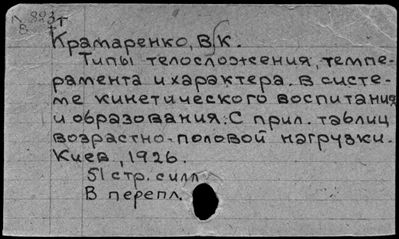 Крамаренко, В. К.
Типы телосложения, темпе-
рамента и характера. в систе-
ме кинетического воспитания
и образования. С прил. таблиц
возрастно-половой нагрузки.
Киев, 1926.
51 стр. с илл.
В перепл.